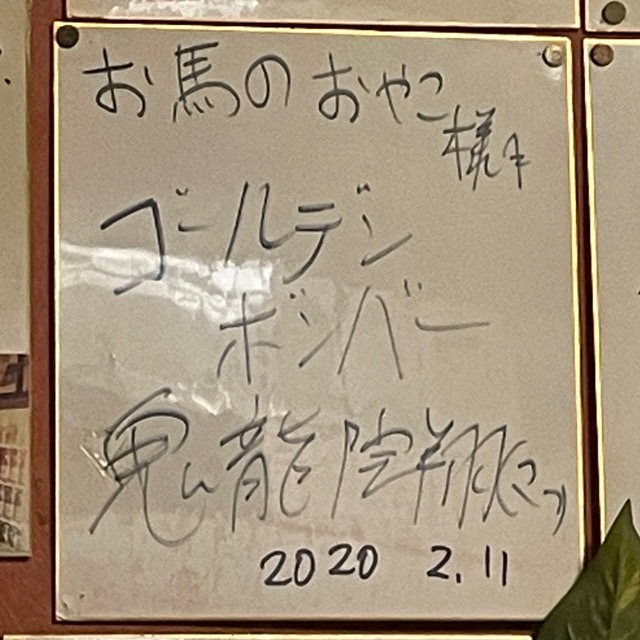 お馬のおやこ
様
ゴールデン
ボンバー
鬼龍院翔
2020 2.11